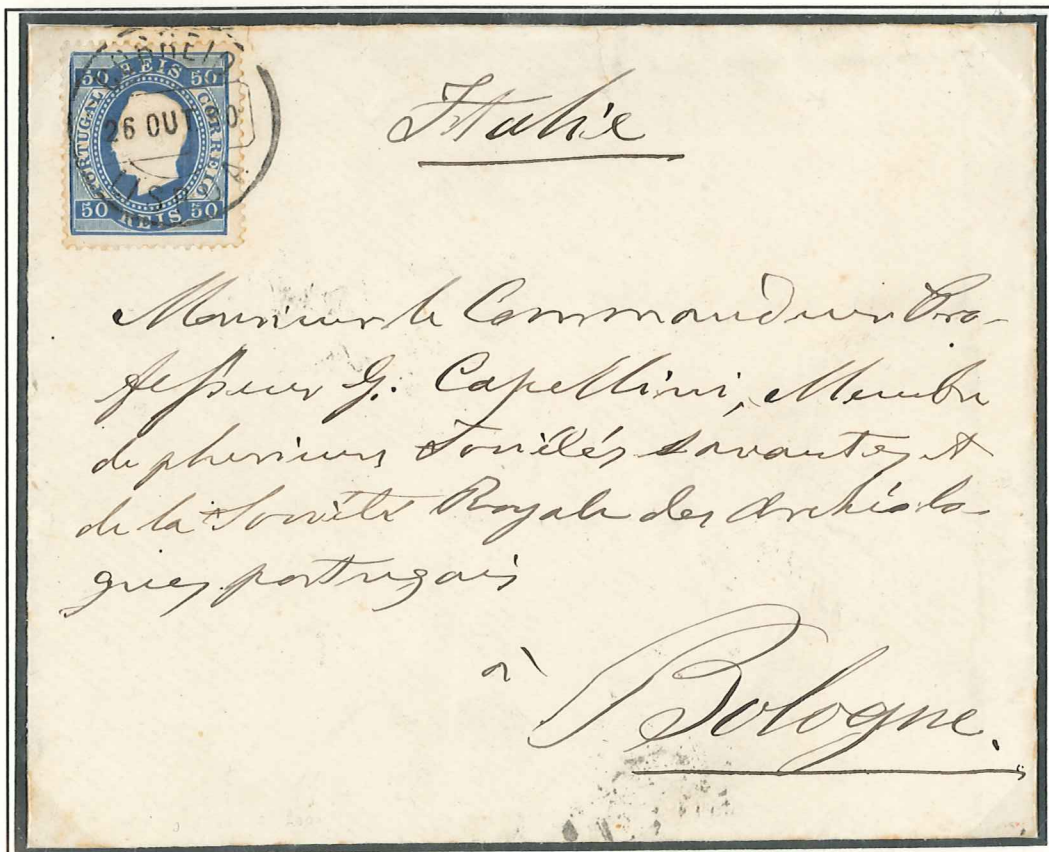 CORREIO
50 REIS 50
PORTUGAL
CORREIO
26 OUT 80
LISBOA
50 REIS 50
Italie
Monsieur le Commandeur Pro-
fesseur G. Capellini, Membre
de plusieurs Sociétés savantes et
de la Société Royale des Archéolo-
gues portugais
à
Bologne.